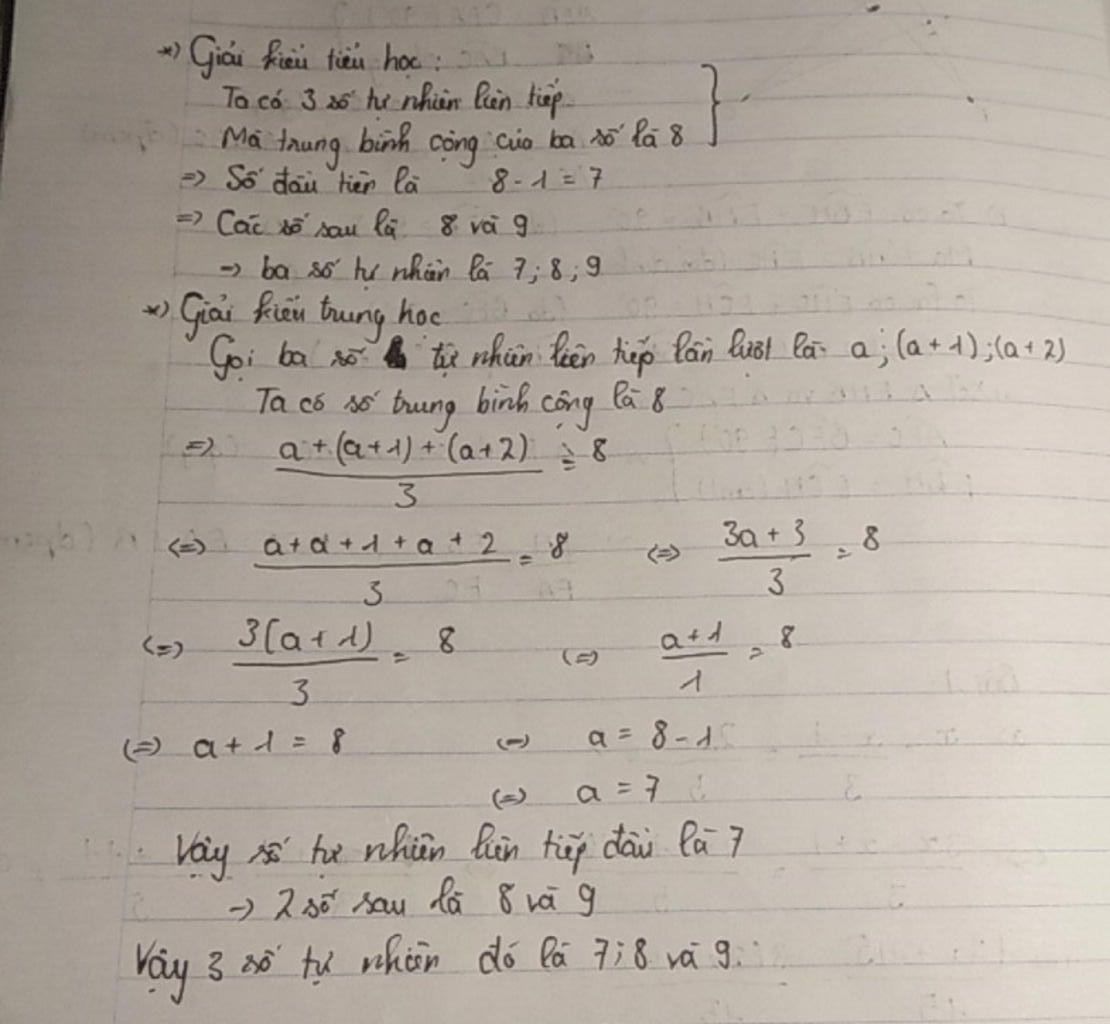 *) Giải kiểu tiểu học:
Ta có 3 số tự nhiên liên tiếp
Mà trung bình cộng của ba số là 8 }
=> Số đầu tiên là 8 - 1 = 7
=> Các số sau là 8 và 9
-> ba số tự nhiên là 7; 8; 9
*) Giải kiểu trung học
Gọi ba số tự nhiên liên tiếp lần lượt là a; (a+1); (a+2)
Ta có số trung bình cộng là 8
=> (a + (a+1) + (a+2))/3 = 8
<=> (a + a + 1 + a + 2)/3 = 8 <=> (3a + 3)/3 = 8
<=> 3(a+1)/3 = 8 <=> (a+1)/1 = 8
<=> a + 1 = 8 <=> a = 8 - 1
<=> a = 7
Vậy số tự nhiên liên tiếp đầu là 7
-> 2 số sau là 8 và 9
Vậy 3 số tự nhiên đó là 7; 8 và 9.